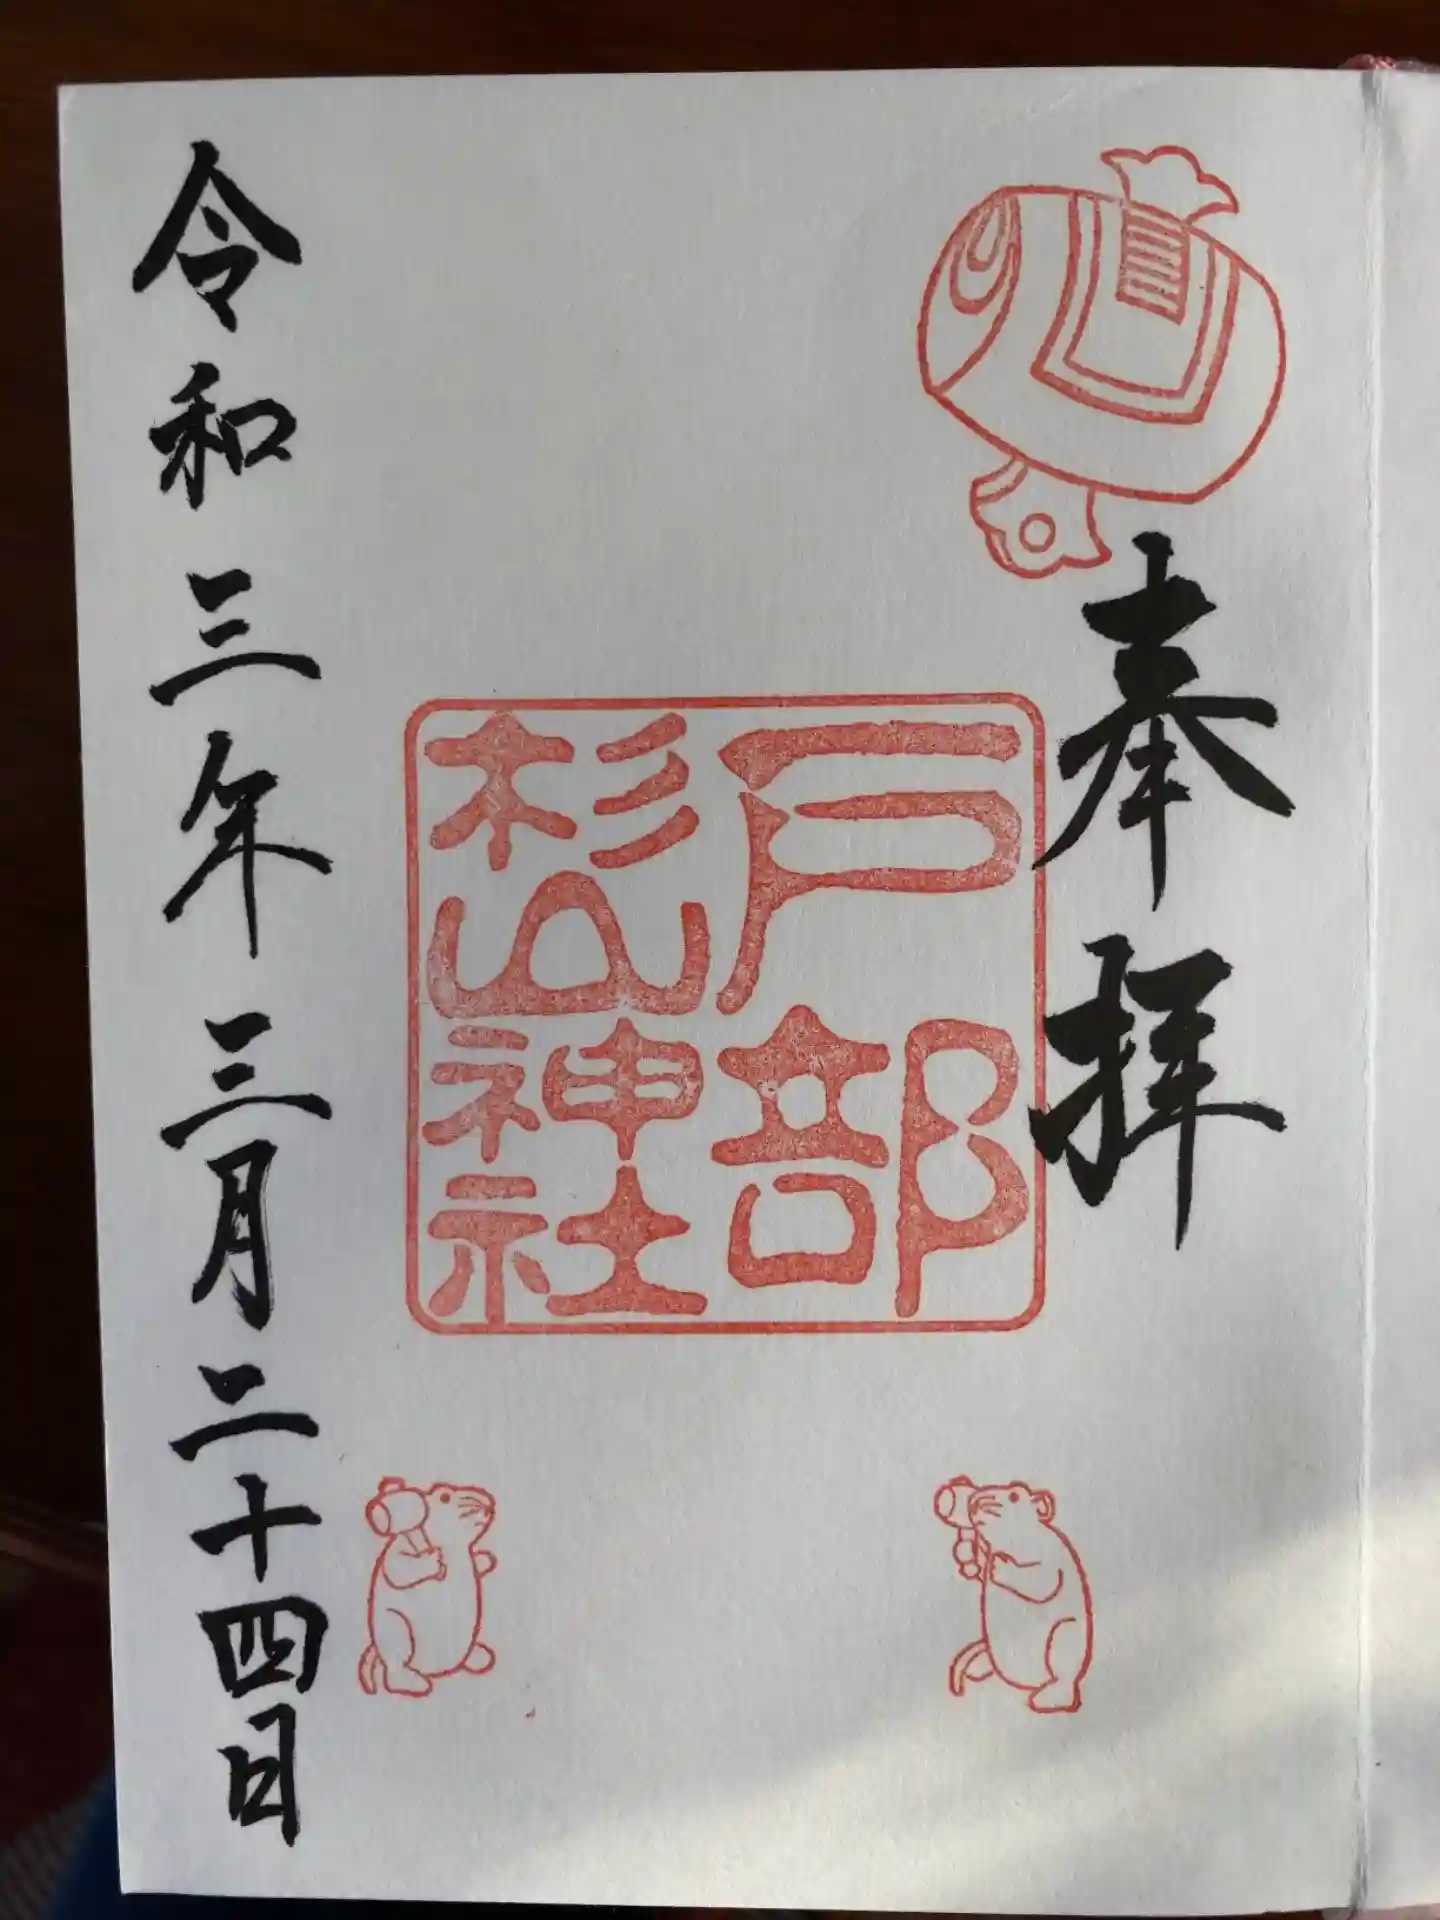 奉拝
戸部
杉山神社
令和三年三月二十四日